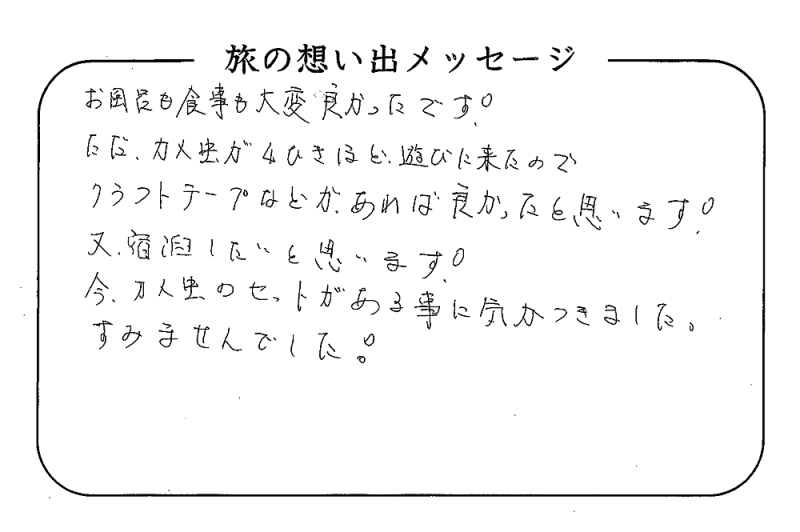 旅の想い出メッセージ
お風呂も食事も大変良かったです!
ただ、カメ虫が4ひきほど、遊びに来たので
クラフトテープなどが、あれば良かったと思います!
又、宿泊したいと思います!
今、カメ虫のセットがある事に気がつきました。
すみませんでした!。